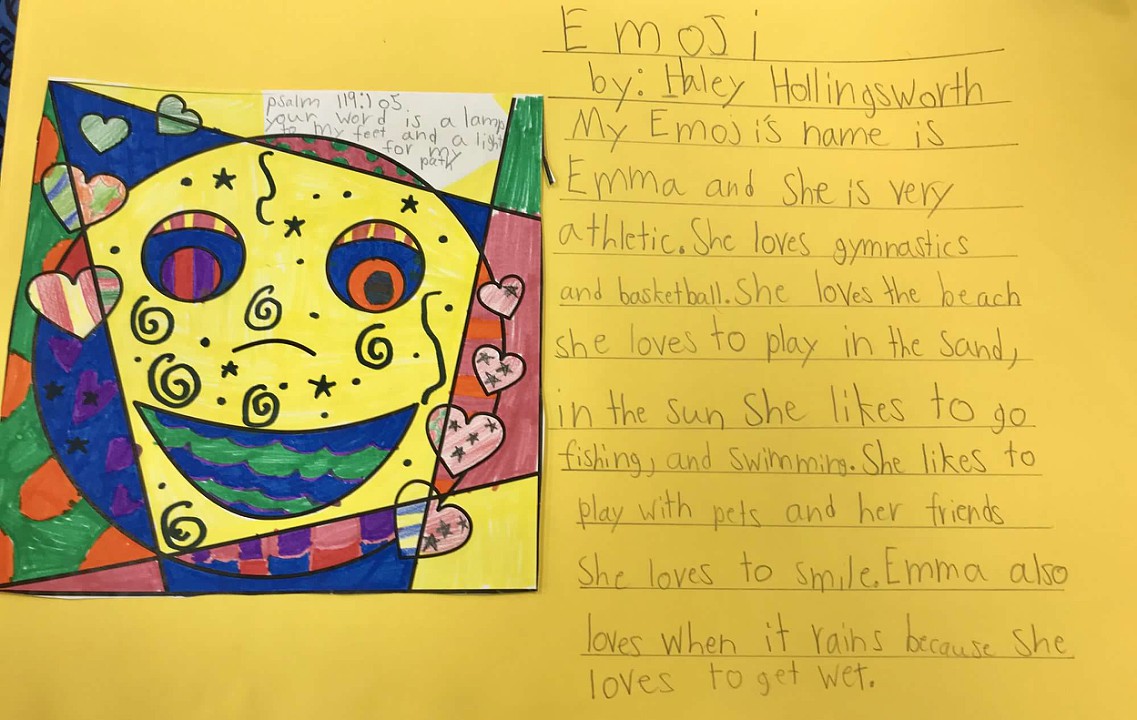 psalm 119:105
your word is a lamp
to my feet and a light
for my
path
Emoji
by: Haley Hollingsworth
My Emoji's name is
Emma and She is very
athletic. She loves gymnastics
and basketball. She loves the beach
she loves to play in the sand,
in the sun She likes to go
fishing, and swimming. She likes to
play with pets and her friends
She loves to smile. Emma also
loves when it rains because She
loves to get wet.